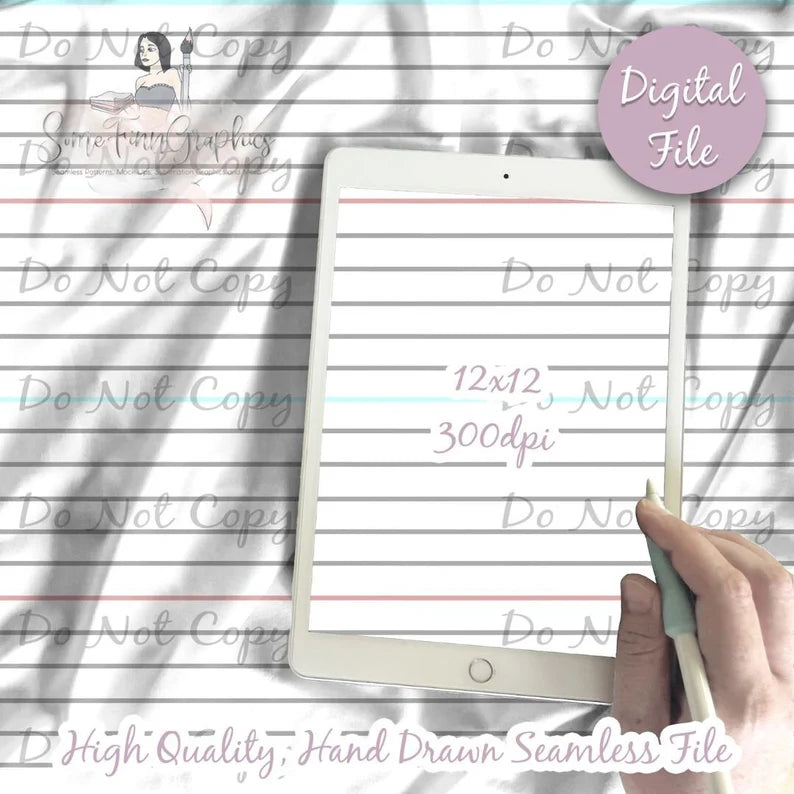 Do Not Copy Do Not Copy
Digital
File
SomeFunnGraphics
Do Not Copy Do Not Copy
Seamless Patterns, Mockups, Sublimation Graphics and More
Do Not Copy Do Not Copy
12x12
Do Not Copy Do Not Copy
300dpi
Do Not Copy Do Not Copy
Do Not Copy Do Not Copy
High Quality, Hand Drawn Seamless File